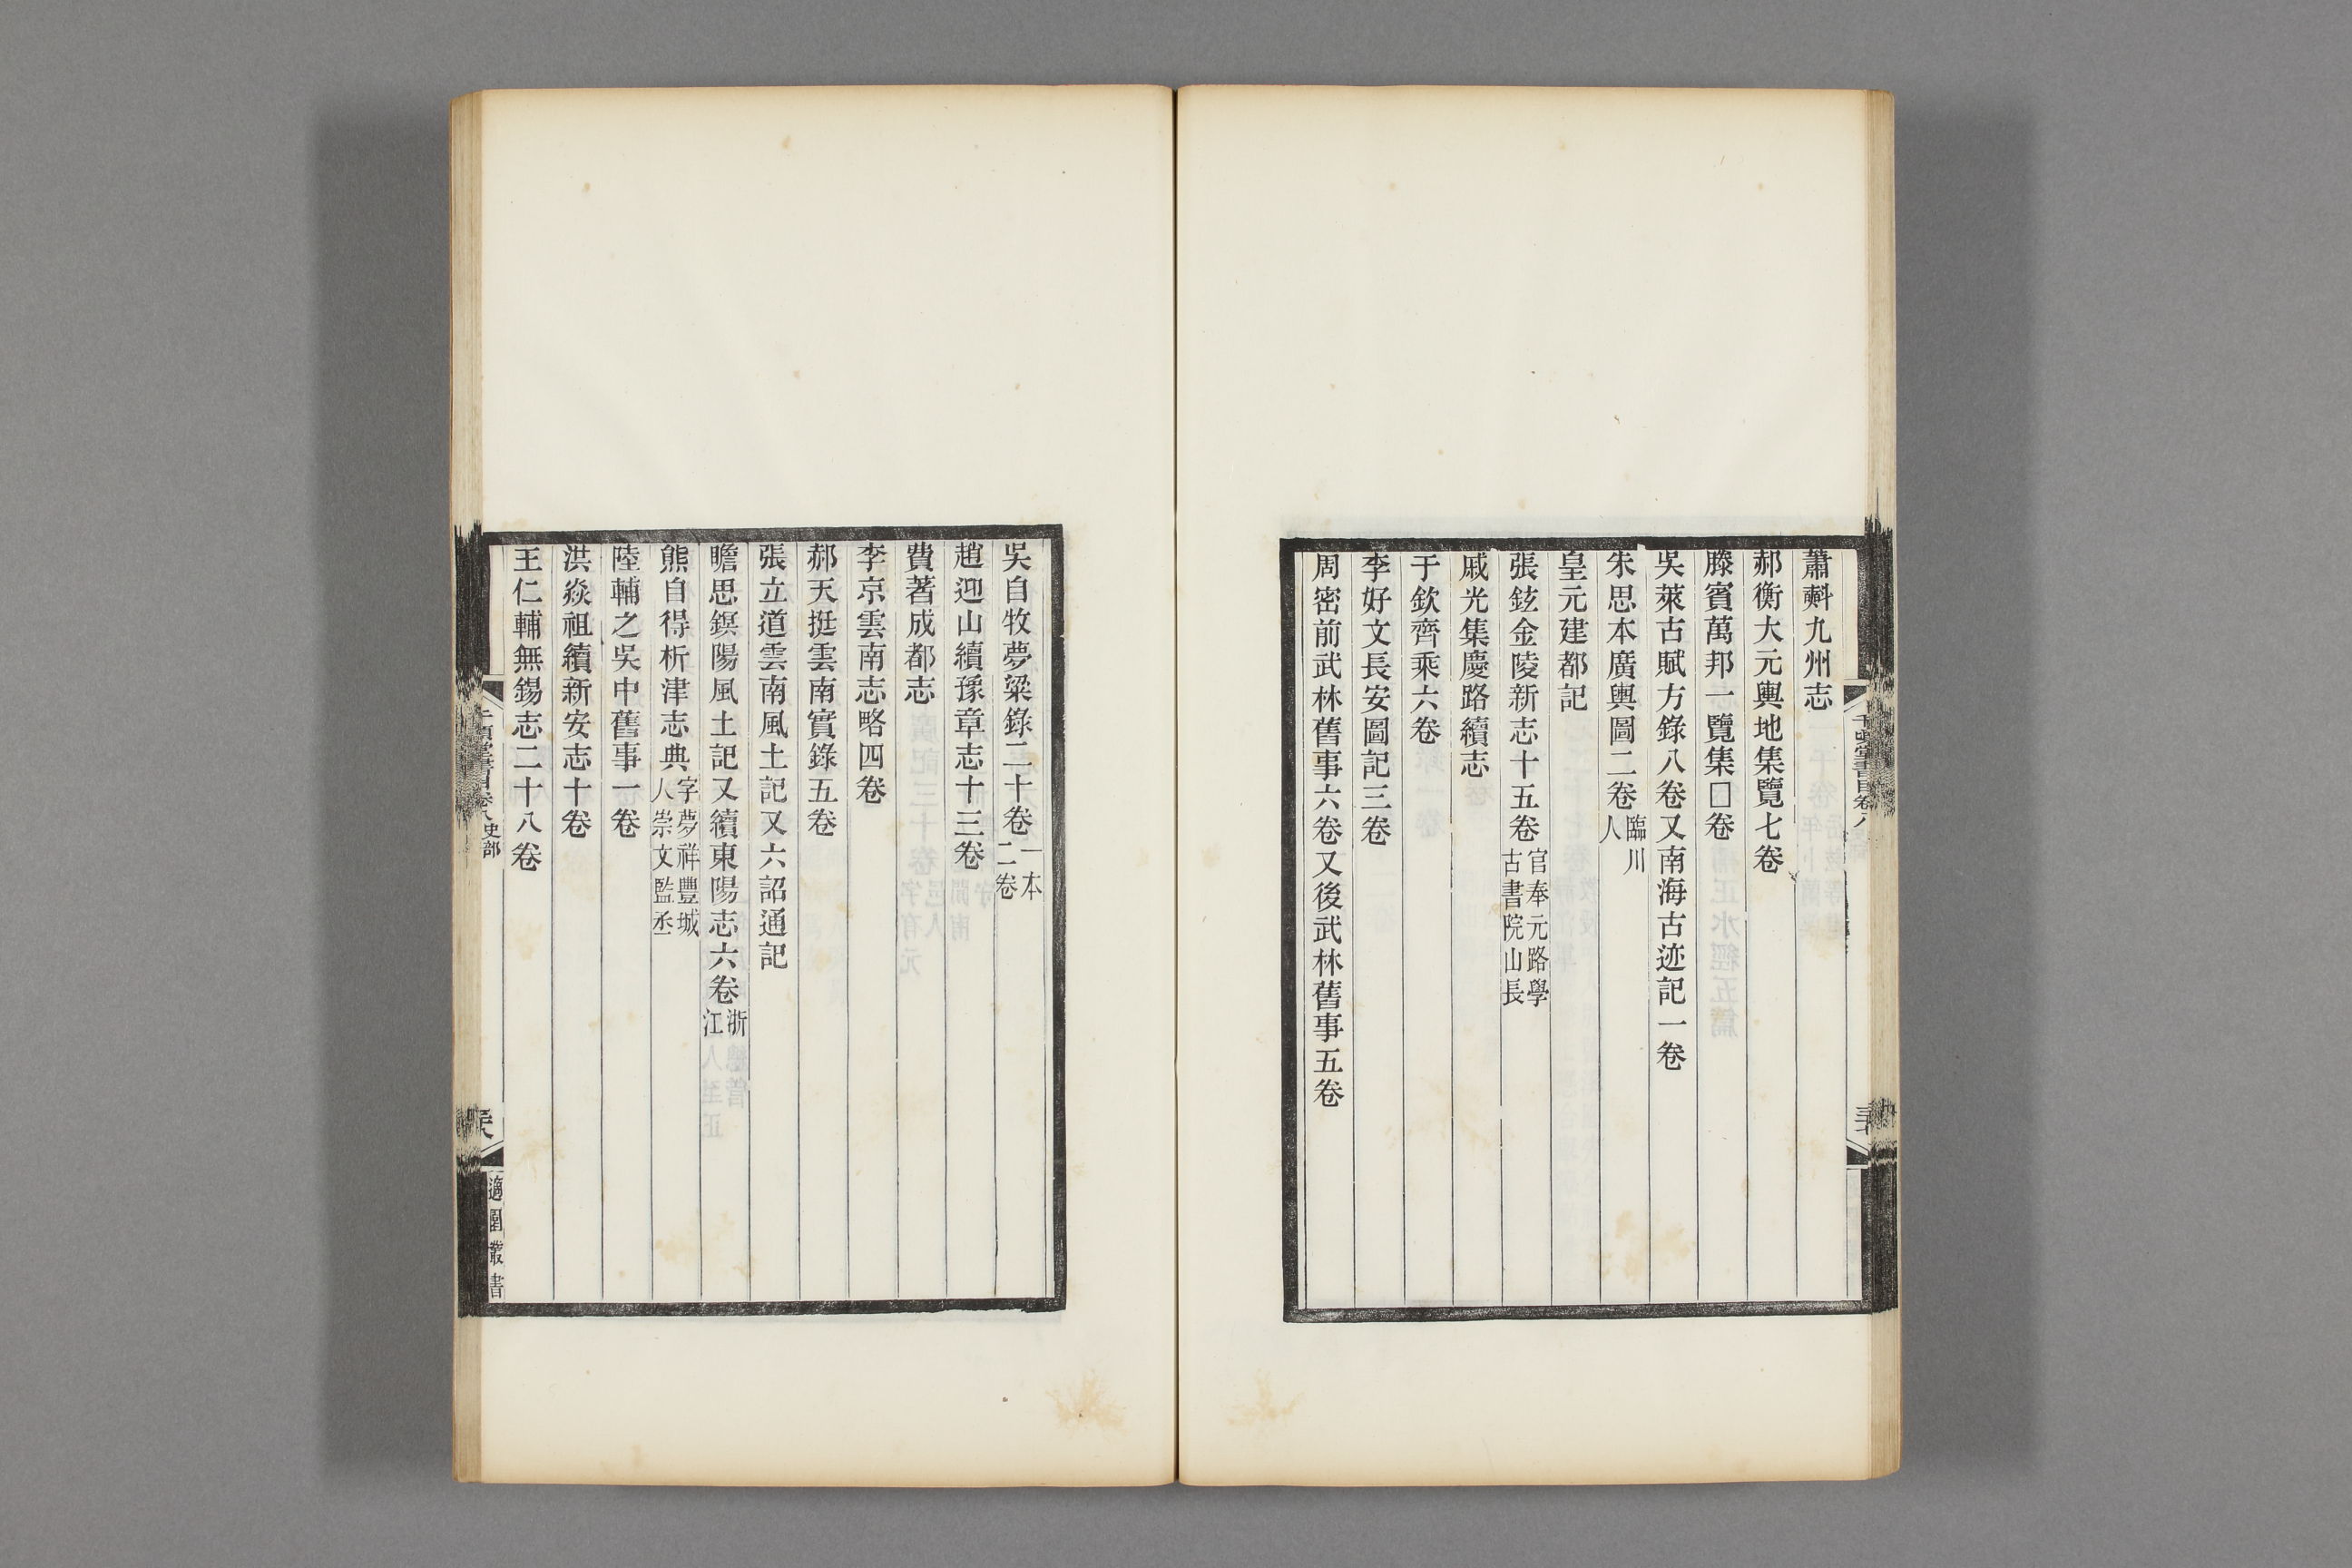 蕭𣂏九州志
郝衡大元輿地集覽七卷
滕賓萬邦一覽集□卷
吳萊古賦方錄八卷又南海古迹記一卷
朱思本廣輿圖二卷臨川人
皇元建都記
張鉉金陵新志十五卷官奉元路學古書院山長
戚光集慶路續志
于欽齊乘六卷
李好文長安圖記三卷
周密前武林舊事六卷又後武林舊事五卷
吳自牧夢粱錄二十卷一本二卷
趙迎山續豫章志十三卷
費著成都志
李京雲南志略四卷
郝天挺雲南實錄五卷
張立道雲南風土記又六詔通記
瞻思鎮陽風土記又續東陽志六卷浙江
熊自得析津志典字夢祥豐城人崇文監丞
陸輔之吳中舊事一卷
洪焱祖續新安志十卷
王仁輔無錫志二十八卷
千頃堂書目卷八史部
適園叢書